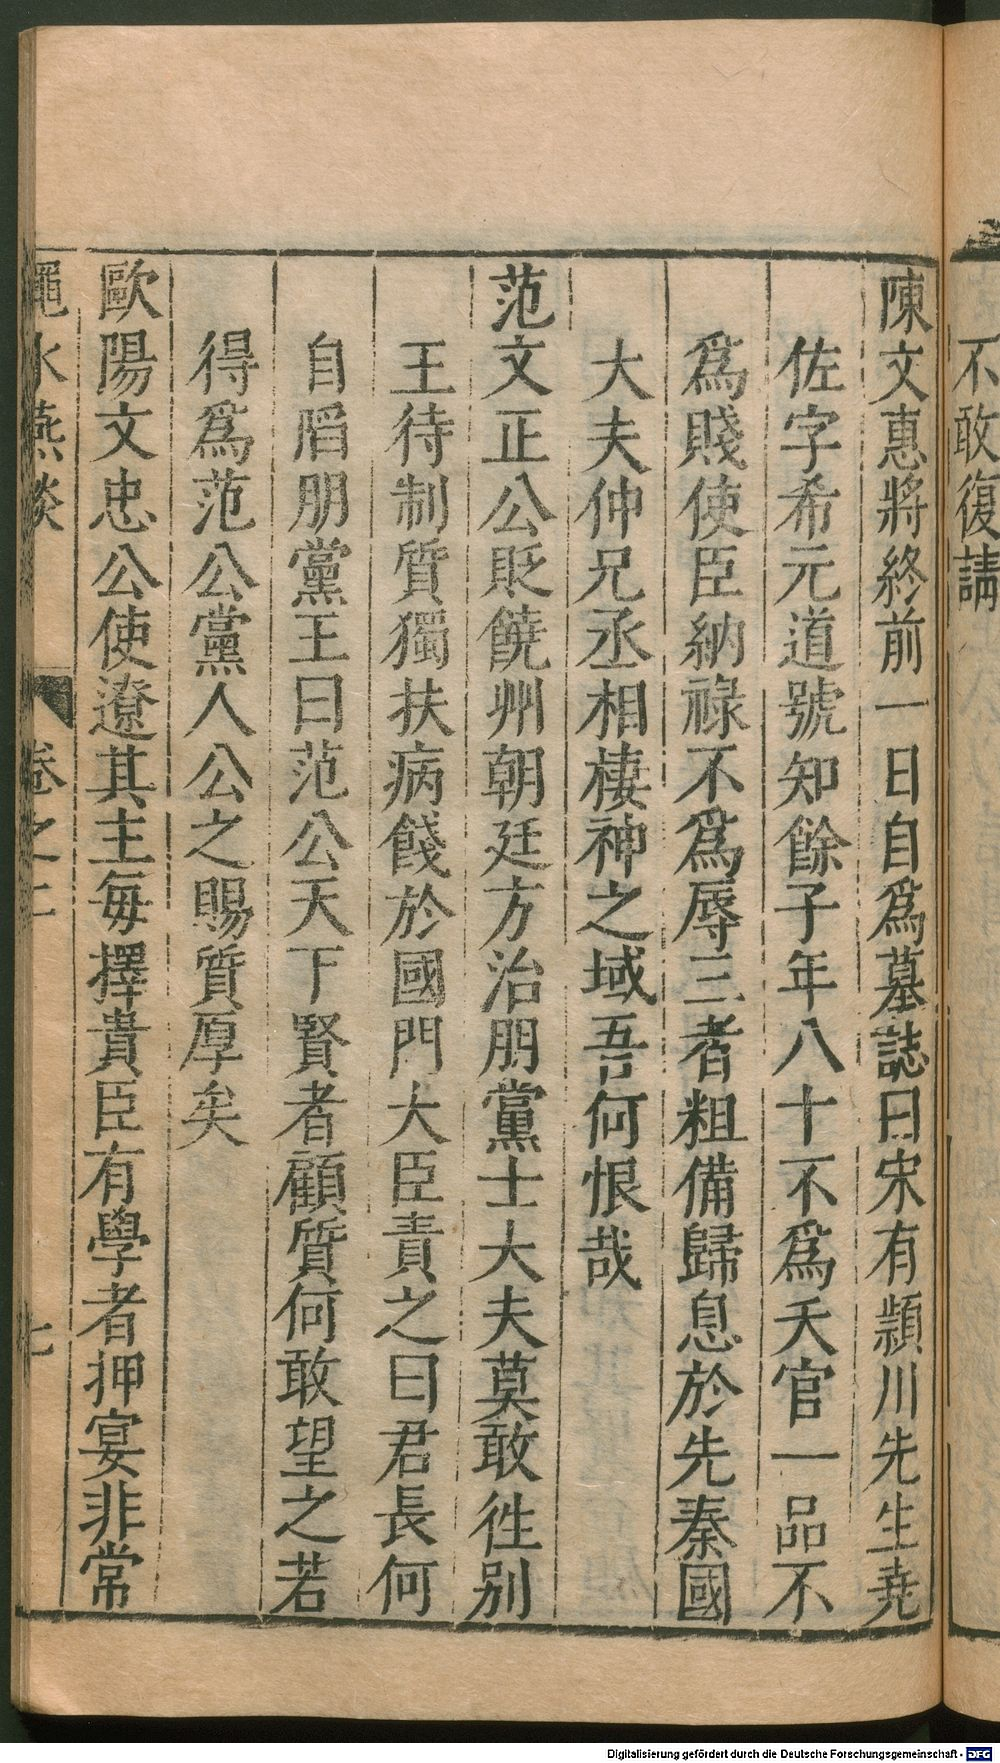 不敢復請
陳文惠將終前一日自爲墓誌曰宋有潁川先生堯
佐字希元道號知餘子年八十不爲夭官一品不
爲賤使臣納祿不爲辱三者粗備歸息於先秦國
大夫仲兄丞相棲神之域吾何恨哉
范文正公貶饒州朝廷方治朋黨士大夫莫敢徃別
王待制質獨扶病餞於國門大臣責之曰君長何
自䧟朋黨王曰范公天下賢者顧質何敢望之若
得爲范公黨人公之賜質厚矣
歐陽文忠公使遼其主每擇貴臣有學者押宴非常
澠水燕談 卷之二 七
Digitalisierung gefördert durch die Deutsche Forschungsgemeinschaft - DFG